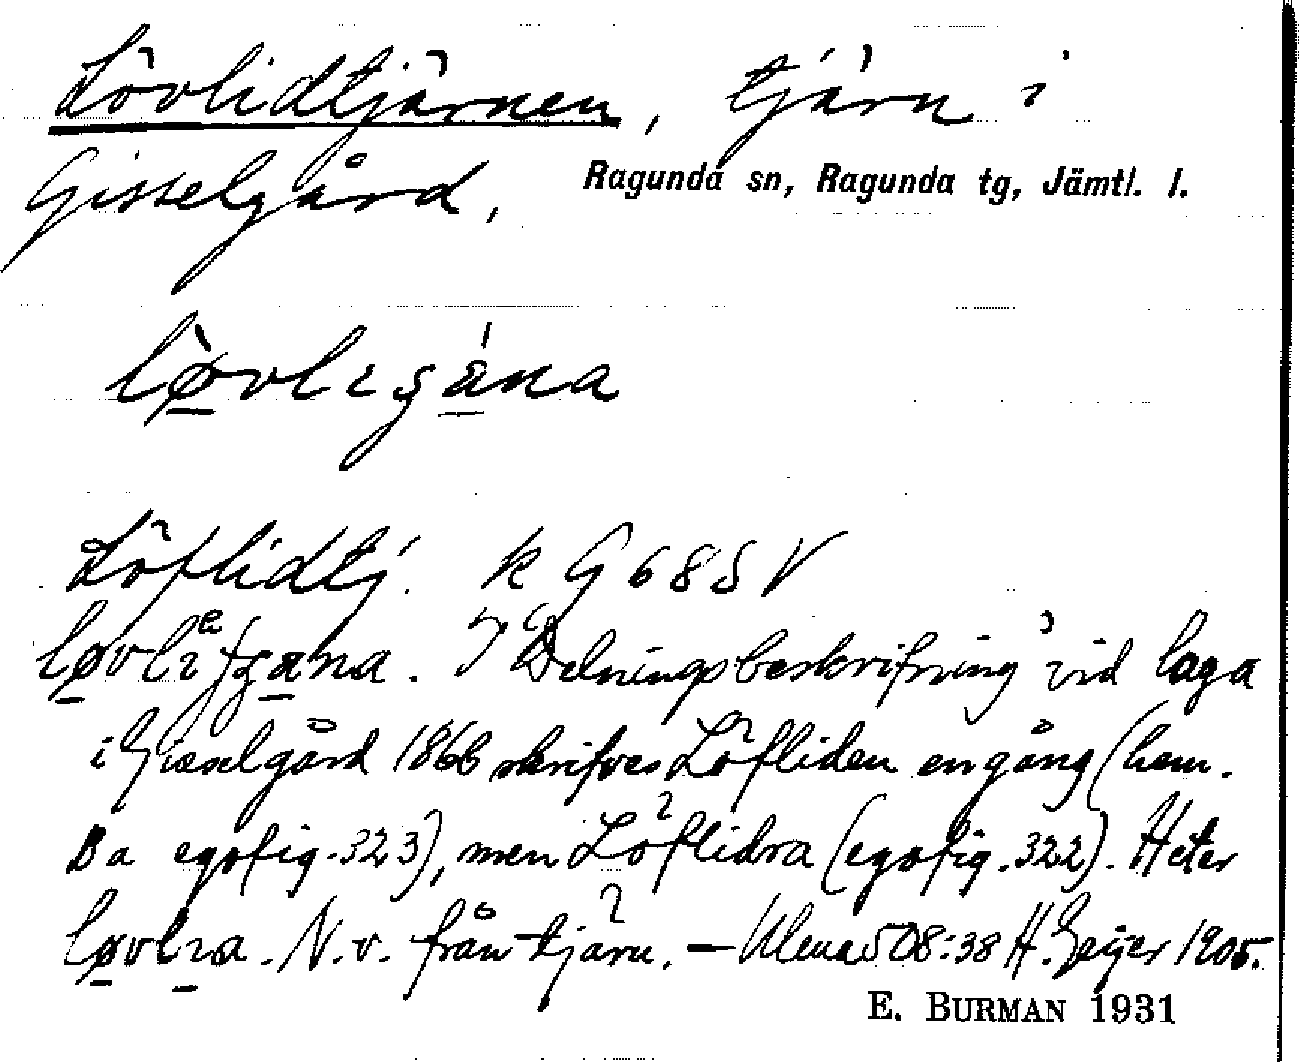 Lövlidtjärnen, tjärn i
Gisselgård, Ragunda sn, Ragunda tg, Jämtl. l.
Löflidtj. k G 68 S V
I Delningsbeskrifning vid laga
i Gisselgård 1866 skrifves Löfliden en gång (hem.
Ba egofig. 323), men Löflidra (egofig. 322). Heter
N. v. från tjärn. – Ulma 508:38 H. Geijer 1905.
E. BURMAN 1931